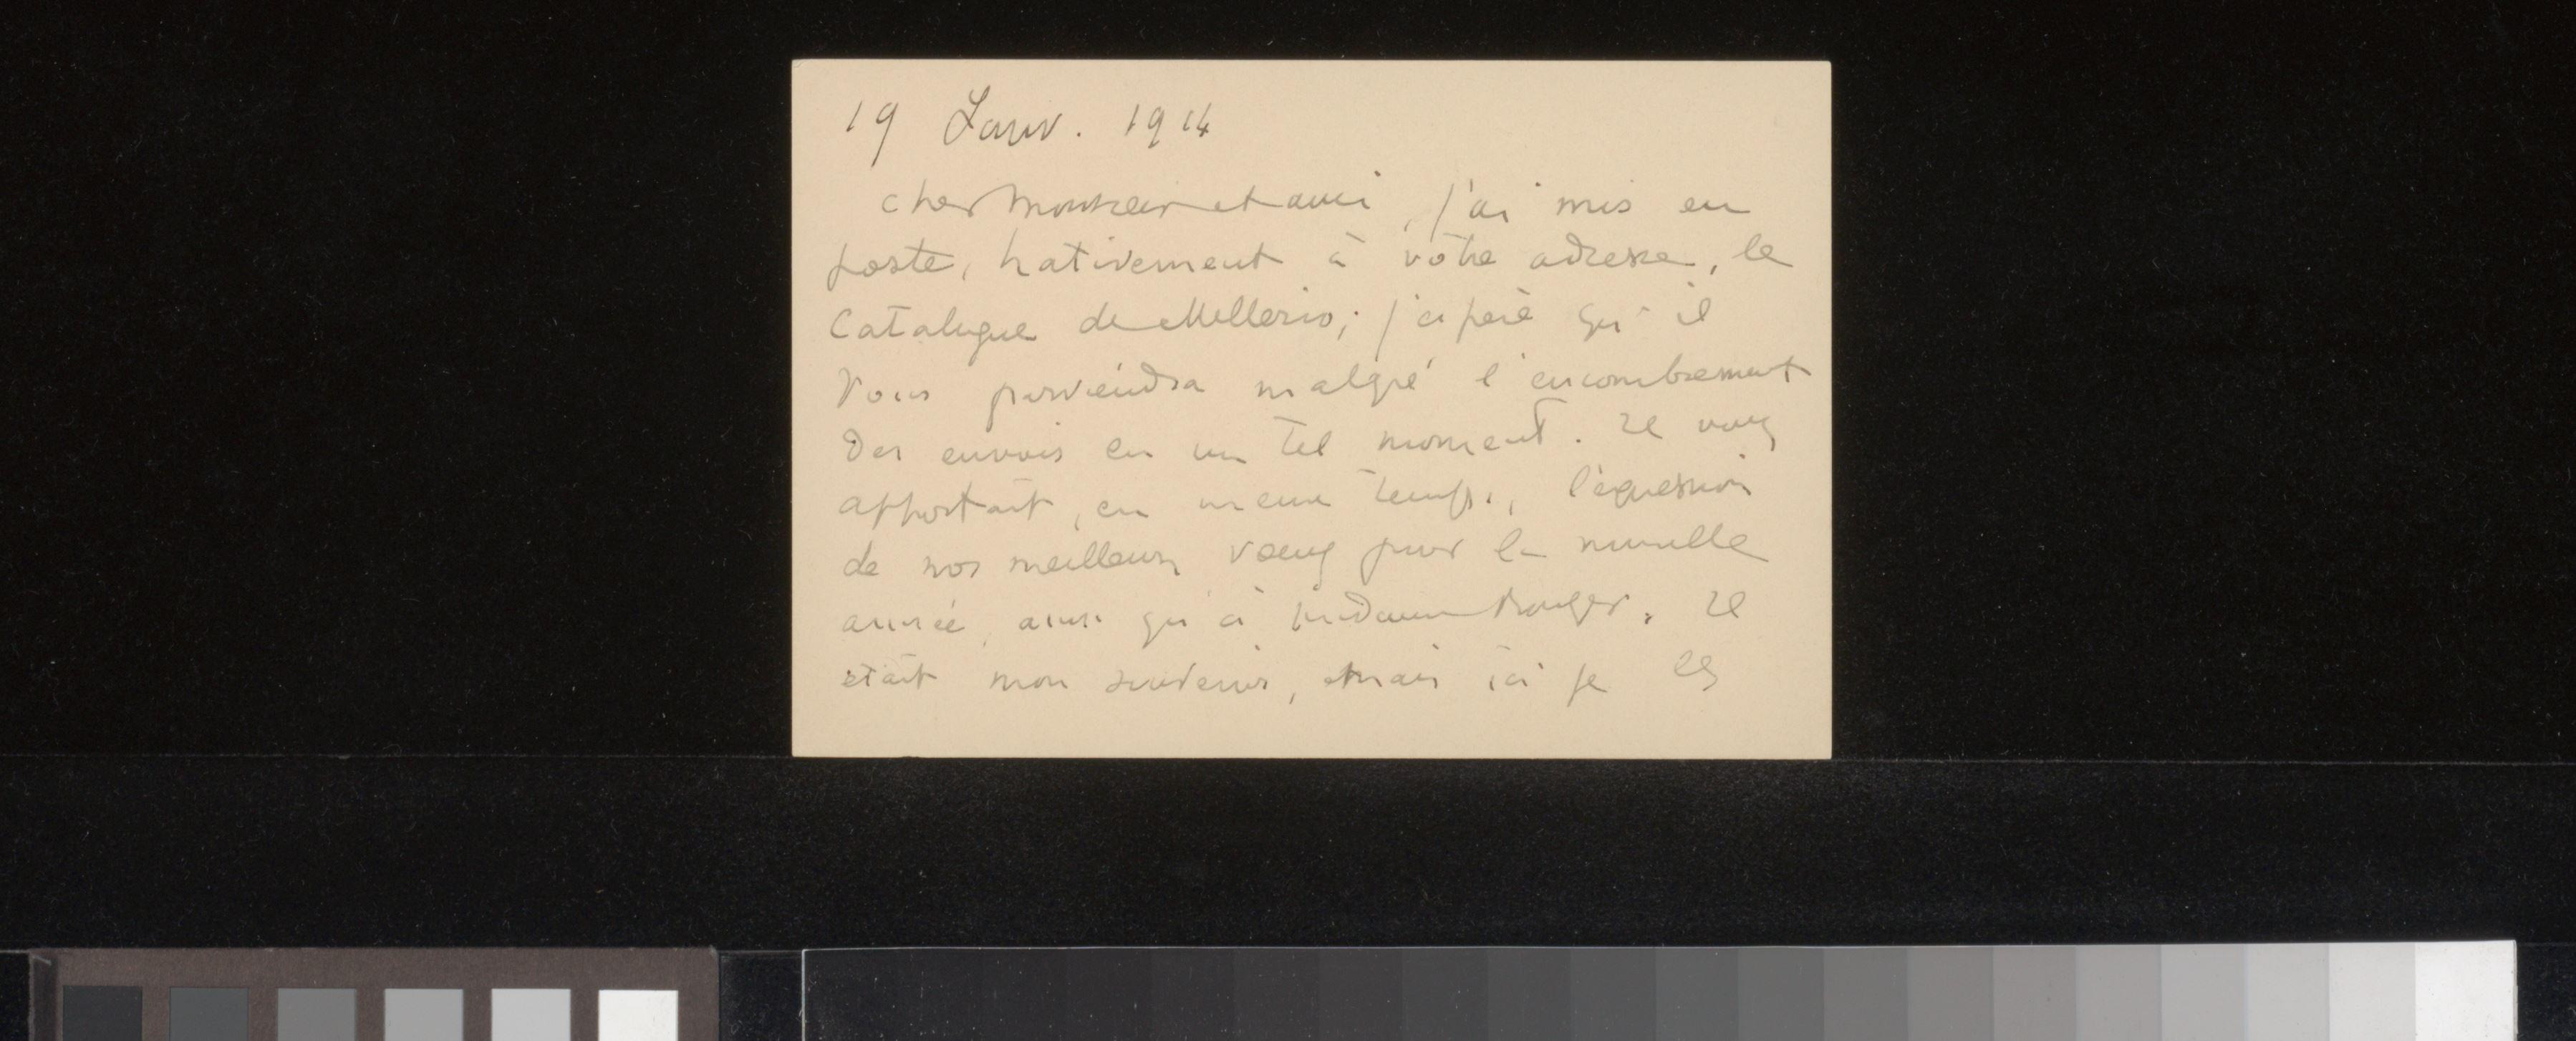 19 Janv. 1914
cher Monsieur et ami, j'ai mis en
poste, hativement à vôtre adresse, le
Catalogue de Mellerio; j'espère qu'il
vous parviendra malgré l'encombrement
des envois en un tel moment. Il vous
apportait, en meme temps, l'expression
de nos meilleurs vœux pour la nouvelle
année, ainsi qu'à Madame Bonger. Il
était mon souvenir, mais ici je les